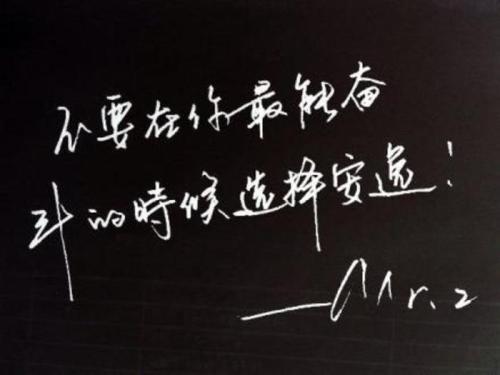 不要在你最能奋
斗的時候选择安逸!
—Mr.z